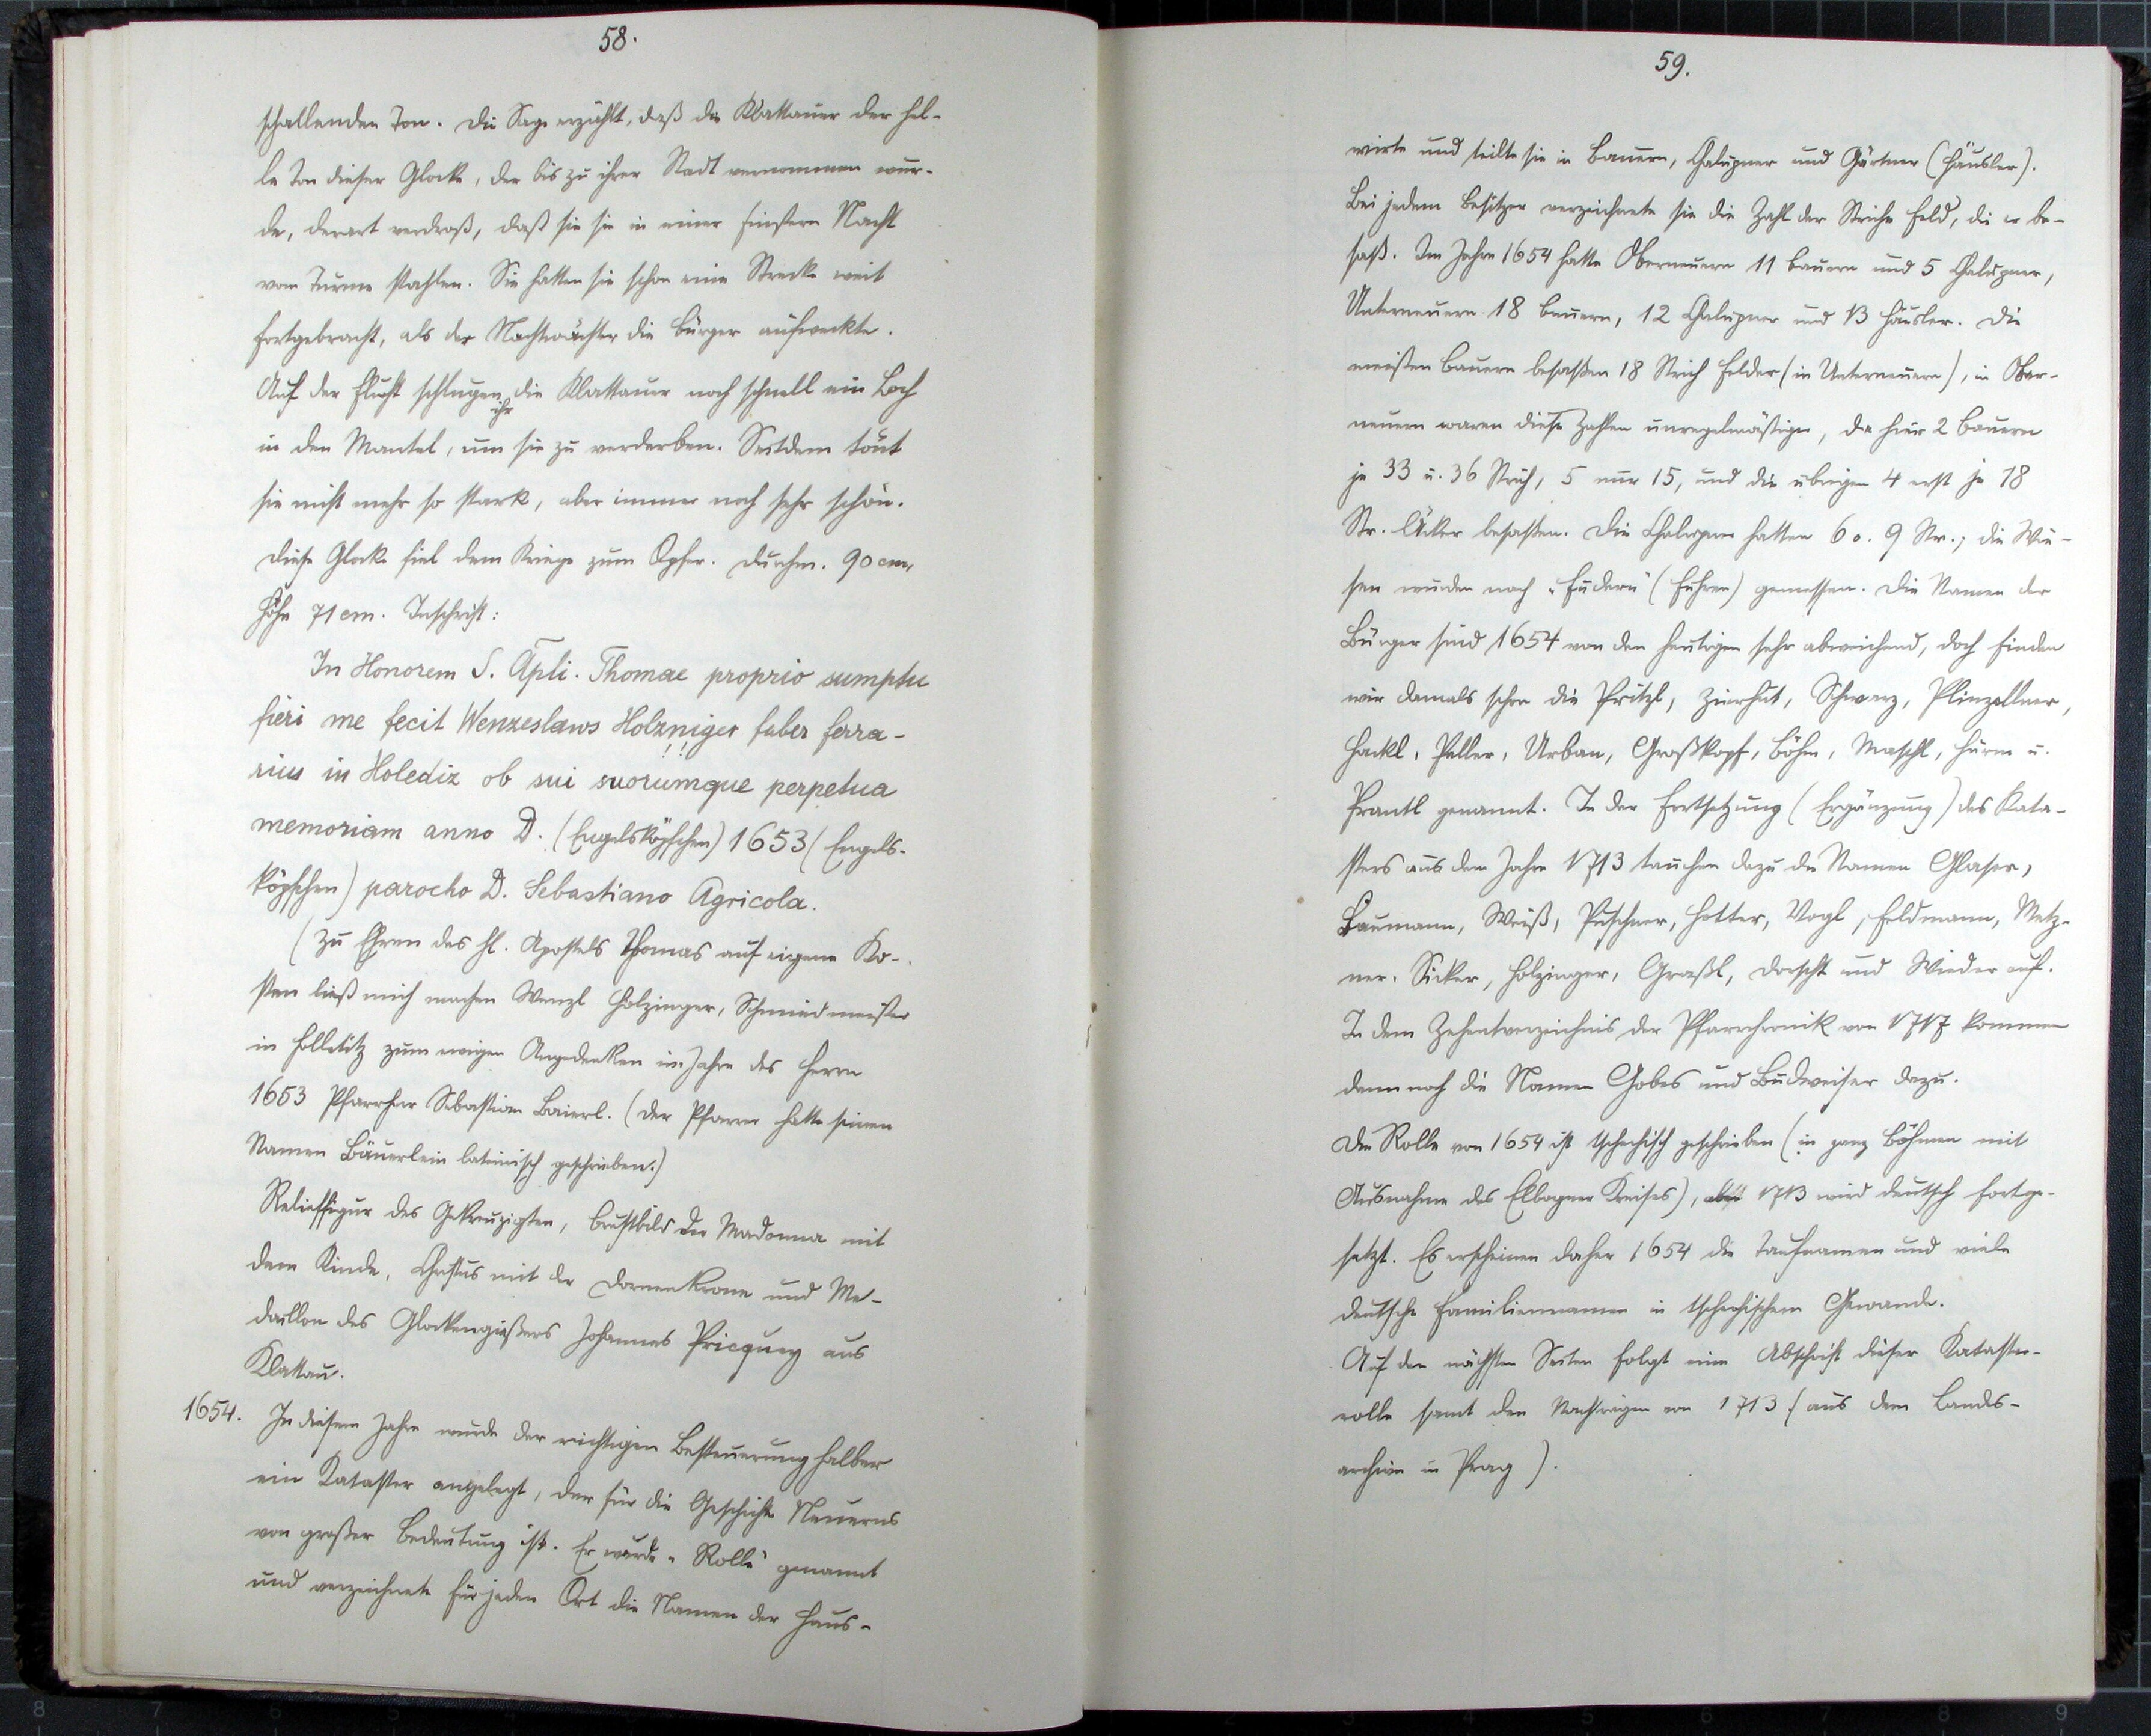 58.
schallenden Ton. Die Sage erzählt, daß die Klattauer der hel-
le Ton dieser Glocke, der bis zu ihrer Stadt vernommen wur-
de, derart verdroß, daß sie sie in einer finstern Nacht
vom Turme stahlen. Sie hatten sie schon eine Strecke weit
fortgebracht, als der Nachtwächter die Bürger aufweckte.
Auf der Flucht schlugen ihr die Klattauer noch schnell ein Loch
in den Mantel, um sie zu verderben. Seitdem tönt
sie nicht mehr so stark, aber immer noch sehr schön.
Diese Glocke fiel dem Kriege zum Opfer. Durchm. 90 cm,
Höhe 71 cm. Inschrift:
In Honorem S. Apli. Thomae proprio sumptu
fieri me fecit Wenzeslaws Holzniger faber ferra-
rius in Holediz ob sui suorumque perpetua
memoriam anno D. (Engelsköpfchen) 1653 (Engels-
köpfchen) parocho D. Sebastiano Agricola.
(Zu Ehren des hl. Apostels Thomas auf eigene Ko-
sten ließ mich machen Wenzl Holzinger, Schmiedmeister
in Holletitz zum ewigen Angedenken im Jahre des Herrn
1653 Pfarrherr Sebastian Baierl. (Der Pfarrer hatte seinen
Namen Bäuerlein lateinisch geschrieben.)
Relieffigur des Gekreuzigten, Brustbild der Madonna mit
dem Kinde, Christus mit der Dornenkrone und Me-
daillon des Glockengießers Johannes Pricquey aus
Klattau.
1654. In diesem Jahre wurde der richtigen Besteuerung halber
ein Kataster angelegt, der für die Geschichte Neuerns
von großer Bedeutung ist. Er wurde "Rolle" genannt
und verzeichnete für jeden Ort die Namen der Haus-
59.
wirte und teilte sie in Bauern, Chalupner und Gärtner (Häusler).
Bei jedem Besitzer verzeichnete sie die Zahl der Striche Feld, die er be-
saß. Im Jahre 1654 hatte Oberneuern 11 Bauern und 5 Chalupner,
Unterneuern 18 Bauern, 12 Chalupner und 13 Häusler. Die
meisten Bauern besaßen 18 Strich Felder (in Unterneuern), in Ober-
neuern waren diese Zahlen unregelmäßiger, da hier 2 Bauern
je 33 u. 36 Strich, 5 nur 15, und die übrigen 4 erst je 18
Str. Äcker besaßen. Die Chalupner hatten 6 o. 9 Str.; die Wie-
sen wurden nach "Fudern" (Fuhren) gemessen. Die Namen der
Bürger sind 1654 von den heutigen sehr abweichend, doch finden
wir damals schon die Pritzl, Zierhut, Schwarz, Plinzellner,
Hackl, Peller, Urban, Großkopf, Böhm, Maschl, Hurm u.
Prantl genannt. In der Fortsetzung (Ergänzung) des Kata-
sters aus dem Jahre 1713 tauchen dazu die Namen Glaser,
Baumann, Weiß, Puschner, Hotter, Vogl, Feldmann, Metz-
ner, Sicker, Holzinger, Graßl, Dorscht und Wieder auf.
In dem Zehentverzeichnis der Pfarrchronik von 1717 kommen
dann noch die Namen Gobes und Budweiser dazu.
Die Rolle von 1654 ist tschechisch geschrieben (in ganz Böhmen mit
Ausnahme des Elbogner Kreises), 1713 wird deutsch fortge-
setzt. Es erscheinen daher 1654 die Taufnamen und viele
deutsche Familiennamen in tschechischem Gewande.
Auf den nächsten Seiten folgt eine Abschrift dieser Kataster-
rolle samt den Nachträgen von 1713 (aus dem Landes-
archive in Prag).